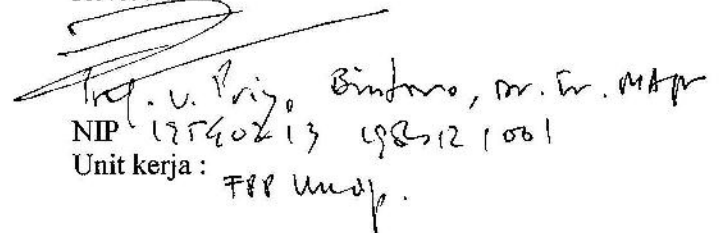 Prof. V. Priyo Bintoro, Dr. Ir. MAgr
NIP 19540213 198512 1 001
Unit kerja :
FPP Undip.